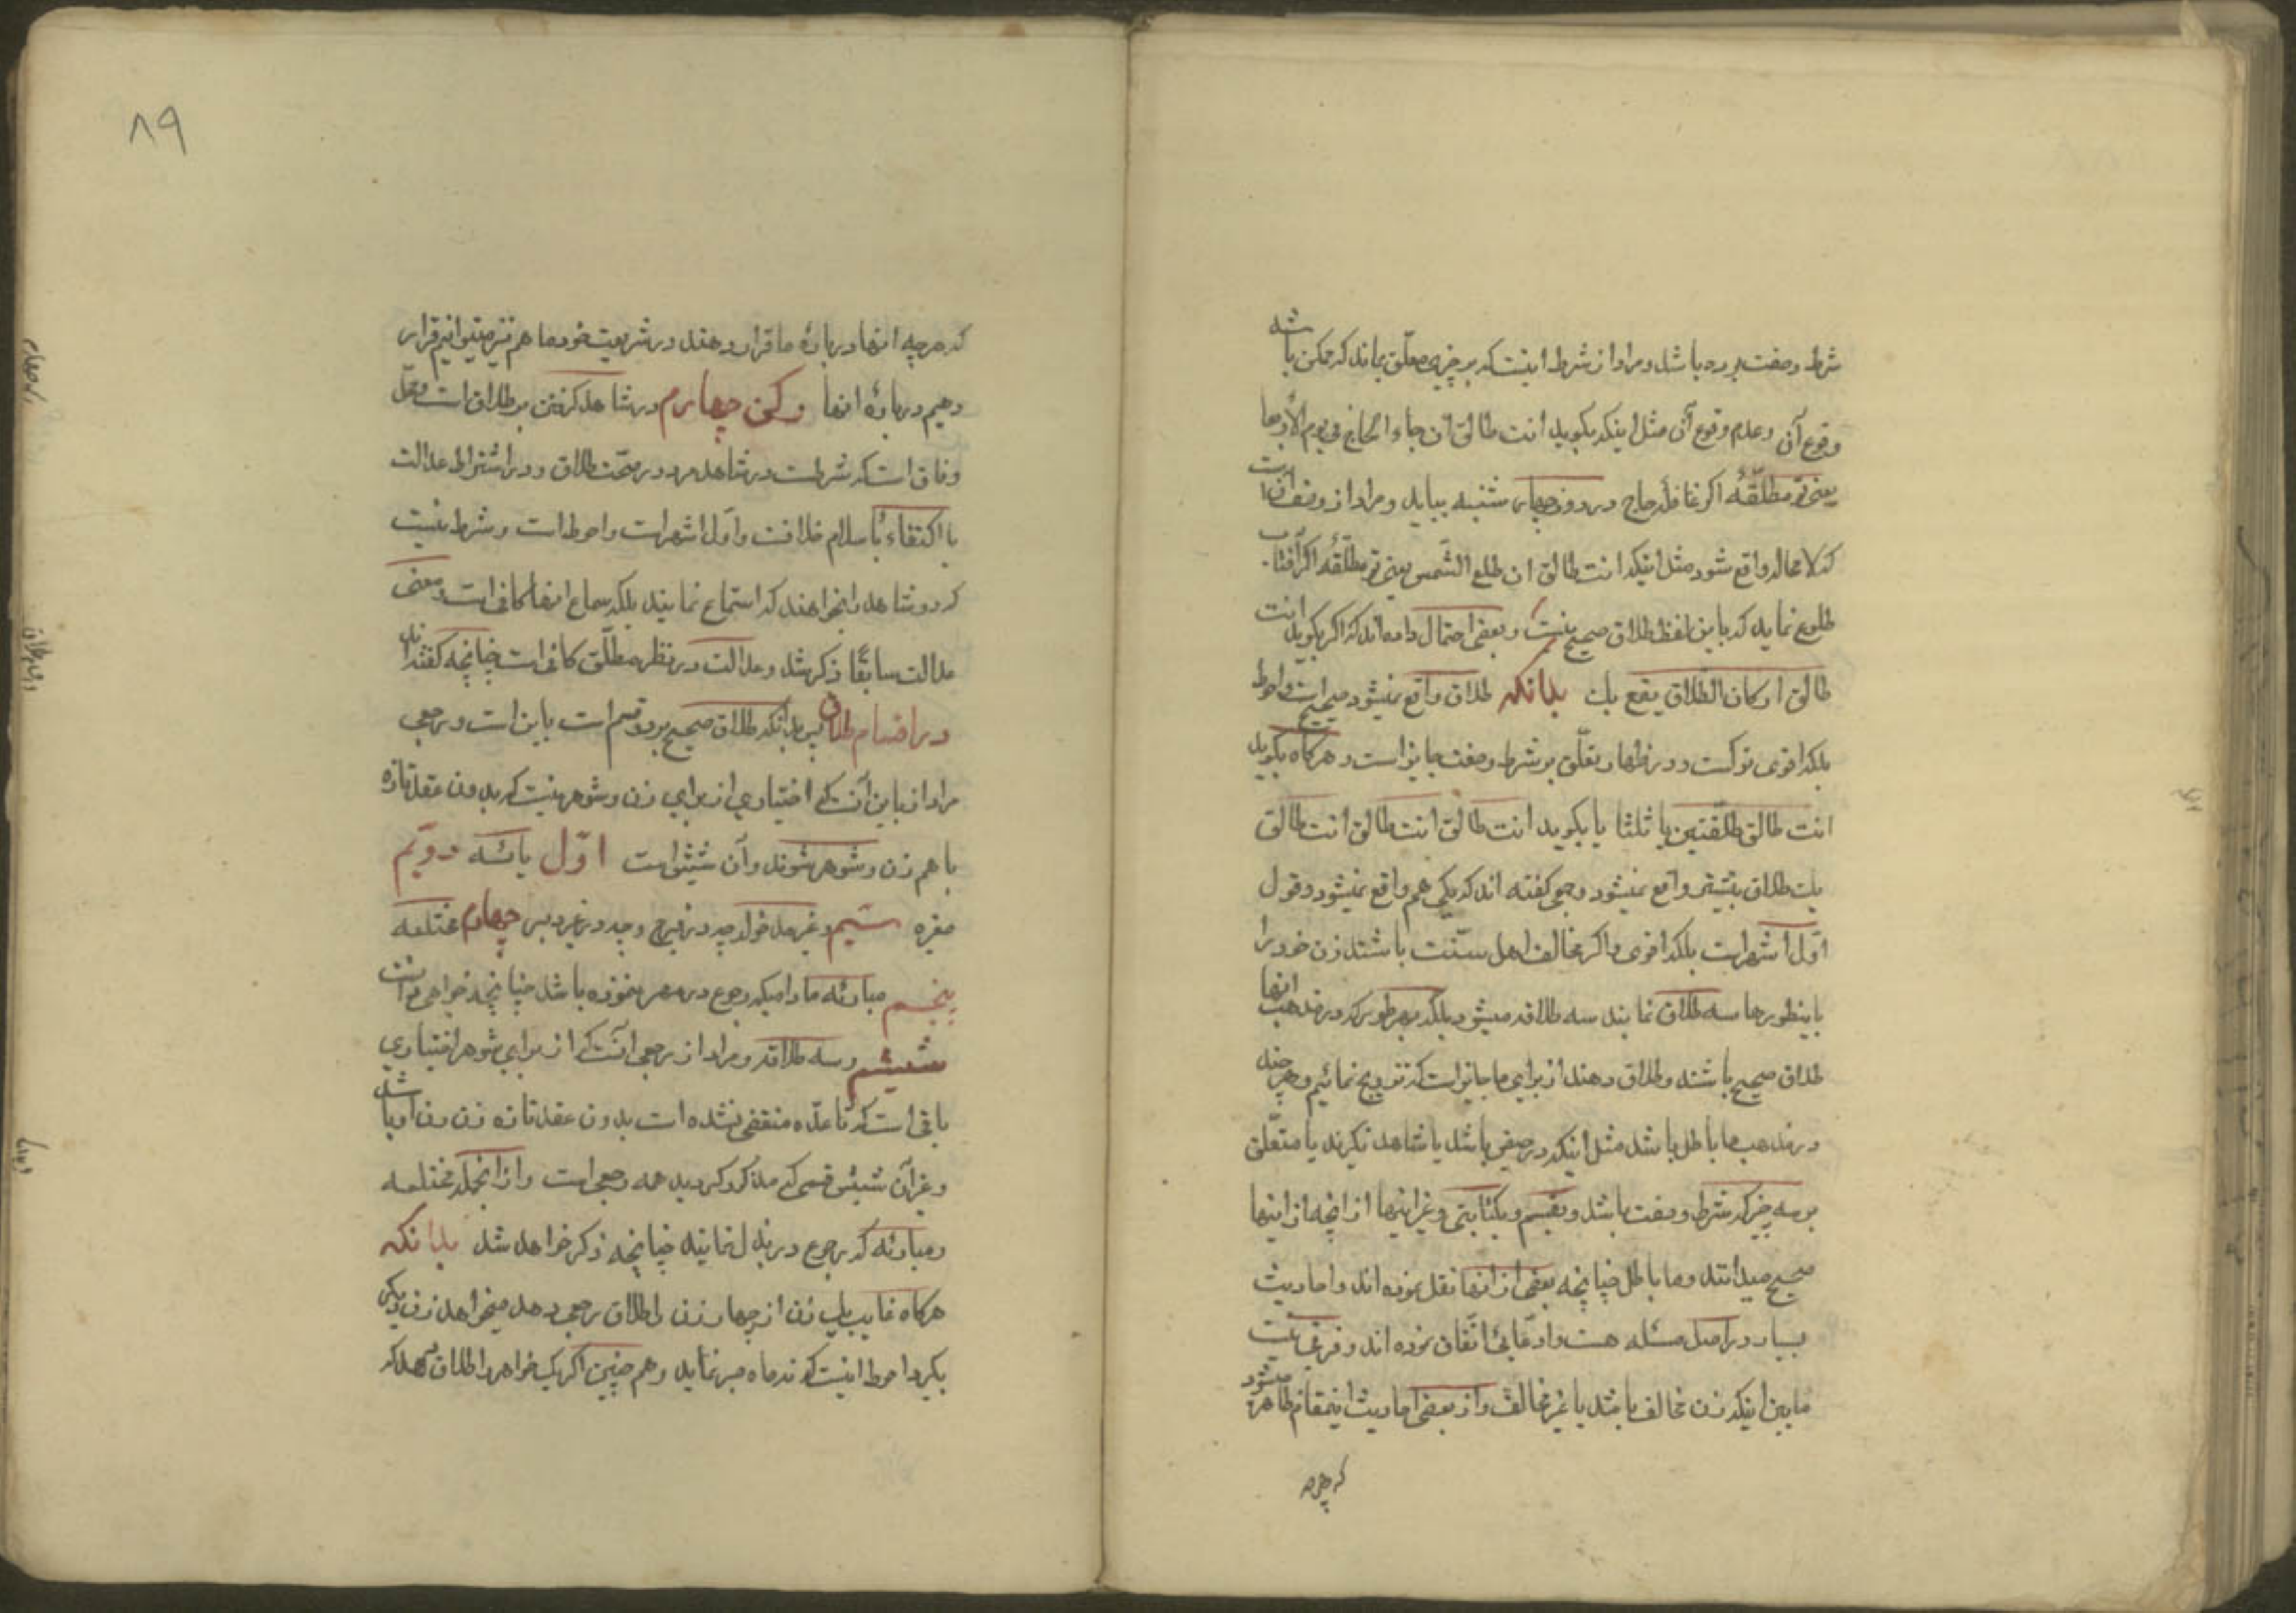 شرط وصفت بوده باشد ومراد از شرط اینست که بر چیزی معلق نماند که ممکن باشد
وقوع آن وعدم وقوع آن مثل اینکه بگوید انت طالق ان جاء الحاج فی یوم الأربعا
یعنی تو مطلّقهٔ اگر غافلهٔ حاج در روز چهار شنبه بیاید ومراد از وصف آن است
که لا محاله واقع شود مثل اینکه انت طالق ان طلع الشّمس یعنی تو مطلّقهٔ اگر آفتاب
طلوع نماید که باین لفظ طلاق صحیح نیست وبعضی احتمال داده‌اند که اگر بگوید انت
طالق او کان الطلاق یقع بك بدانکه طلاق واقع میشود صحیح است واحوط
بلکه اقوی ترکست ودر ظهار تعلّق بر شرط وصفت جایز است وهرگاه بگوید
انت طالق طلقتین یا ثلثا یا بگوید انت طالق انت طالق انت طالق
یك طلاق بیشتر واقع نمیشود وجمعی گفته اند که یکی هم واقع نمیشود وقول
اوّل اشهر است بلکه اقوی واگر مخالف اهل سنّت باشند زن خود را
باینطورها سه طلاق نمایند سه طلاقه میشود بلکه بهر طور که در مذهب انها
طلاق صحیح باشد وطلاق دهند از برای ما جایز است که تزویج نمائیم وهر چند
در مذهب ما باطل باشد مثل اینکه در حیض باشد یا شاهد نگیرند یا متعلّق
بر سه چیز که شرط وصفت باشد وبقسم وبکتابتی وغیر اینها از آنچه از اینها
صحیح میدانند وما باطل چنانچه بعضی از انها نقل نموده اند واحادیث
بسیار در اصل مسئله هست وادّعای اتّفاق نموده اند وفرقی نیست
مابین اینکه زن مخالف باشد یا غیر مخالف واز بعضی احادیث اینمقام ظاهر میشود
که هرچه
۸۹
که هرچه انها دربارهٔ ما قرار دهند در شریعت خود ما هم نیز میتوانیم قرار
دهیم دربارهٔ انها رکن چهارم در شاهد گرفتن بر طلاق است ومحلّ
وفاق است که شرطست در شاهد مرد در صحّت طلاق ودر اشتراط عدالت
یا اکتفاء باسلام خلافست واوّل اشهر است واحوط است وشرط نیست
که دو شاهد را بخواهند که استماع نمایند بلکه سماع انها کافی است ومعنی
عدالت سابقًا ذکر شد وعدالت در نظر مطلّق کافی است چنانچه گفته‌اند
در اقسام طلاق پس بدانکه طلاق صحیح بر دو قسم است باین است ورجعی
مراد از باین آنست که اختیاری از برای زن وشوهر نیست که بدون عقد تازه
با هم زن وشوهر شوند وآن شش است اوّل یائسه دویّم
صغیره سیّم وغیر مدخوله چه در فرج وچه در غیر دبر چهارم مختلعه
پنجم مبارئه مادامیکه رجوع در مهر ننموده باشد چنانچه خواهی دانست
ششم سه طلاقه ومراد از رجعی انست که از برای شوهر اختیاری
باقی است که تا عدّه منقضی نشده است بدون عقد تازه زن زن او باشد
وغیر آن شش قسمی که مذکور گردید همه رجعی است واز انجمله مختلعه
ومبارئه که رجوع در بذل نمایند چنانچه ذکر خواهد شد بدانکه
هرگاه غایب یك زن از چهار زن را طلاق رجعی دهد میخواهد زن دیگر
بگیرد احوط اینست که نه ماه صبر نماید وهم چنین اگر یك خواهر را طلاق دهد که